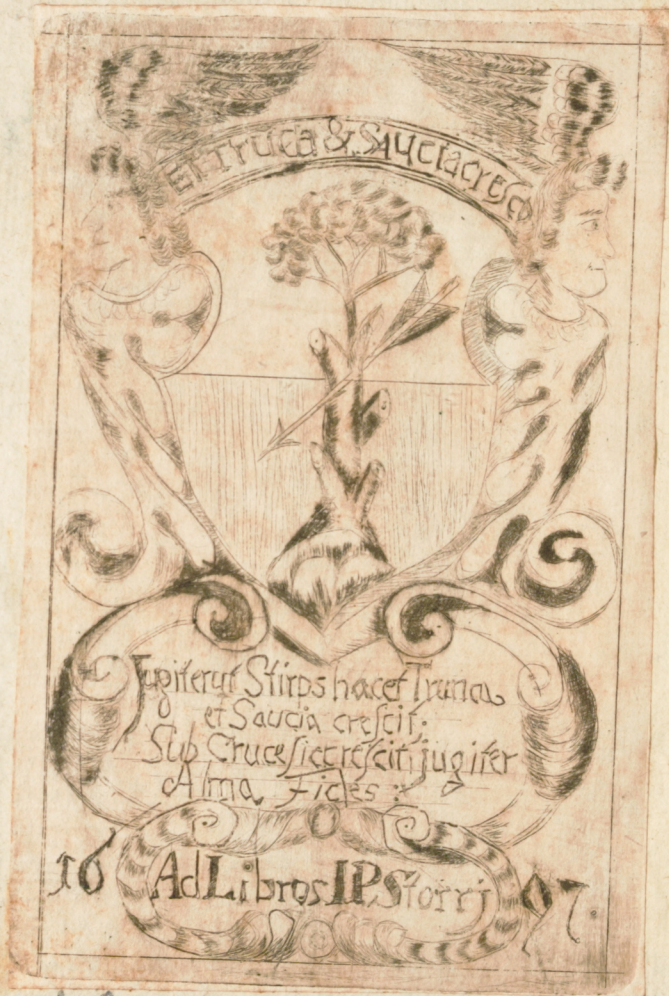 Et Truca & Sauciacresco
Jugiterut Stirps hacet Trunca
et Saucia crescit;
Sub Cruce sic crescit jugiter
Alma Fides:
16 Ad Libros IP Storri 97.